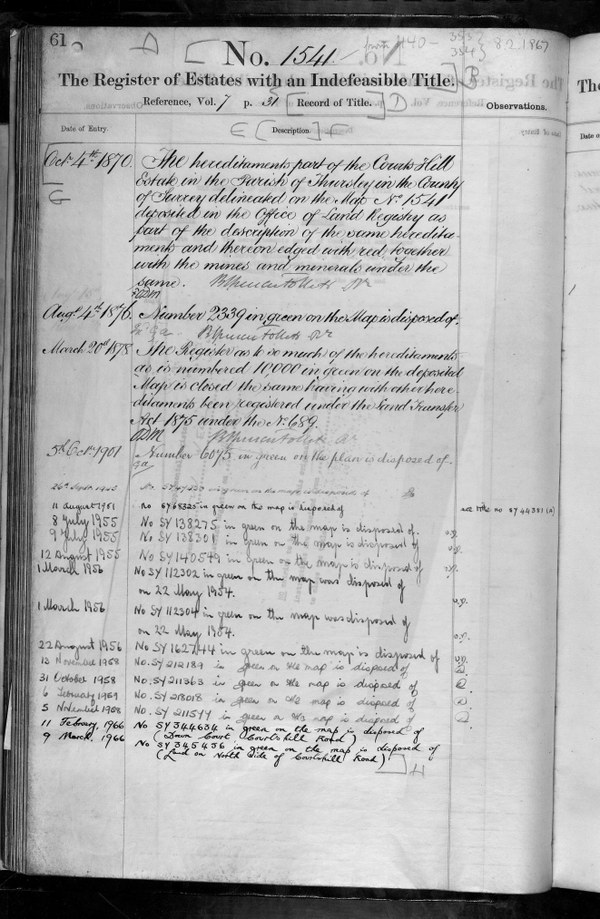 61
No. 1541
The Register of Estates with an Indefeasible Title.
Reference, Vol. 7 p. 31 Record of Title.
Observations.
Date of Entry.
Description
Oct 4th 1870. The hereditaments part of the Courts Hill
G
Estate in the Parish of Thursley in the County
of Surrey delineated on the Map No 1541
deposited in the Office of Land Registry as
part of the description of the same heredita-
ments and thereon edged with red together
with the mines and minerals under the
same.
Augt 4th 1876. Number 2339 in green on the Map is disposed of.
March 20th 1878 The Register as to so much of the hereditaments
as is numbered 10000 in green on the deposited
Map is closed the same having with other here-
ditaments been registered under the Land Transfer
Act 1875 under the No 689.
5th Oct. 1901 Number 6075 in green on the plan is disposed of.
in green on the map is disposed of
11 August 1951 No SY 68325 in green on the map is disposed of
see title no SY 44381 (a)
8 July 1955 No SY 138275 in green on the map is disposed of.
9 July 1955 No SY 138301 in green on the map is disposed of
12 August 1955 No SY 140549 in green on the map is disposed of
1 March 1956 No SY 112302 in green on the map was disposed of
on 22 May 1954.
1 March 1956 No SY 112304 in green on the map was disposed of
on 22 May 1954.
22 August 1956 No SY 162744 in green on the map is disposed of
13 November 1958 No. SY 212189 in green on the map is disposed of
31 October 1958 No. SY 211363 in green on the map is disposed of
6 February 1959 No. SY 218018 in green on the map is disposed of
5 November 1958 No. SY 211577 in green on the map is disposed of
11 February 1966 No SY 344634 in green on the map is disposed of
(Down Court Courtshill Road)
9 March, 1966 No SY 345456 in green on the map is disposed of
(Land on North Side of Courtshill Road)
H